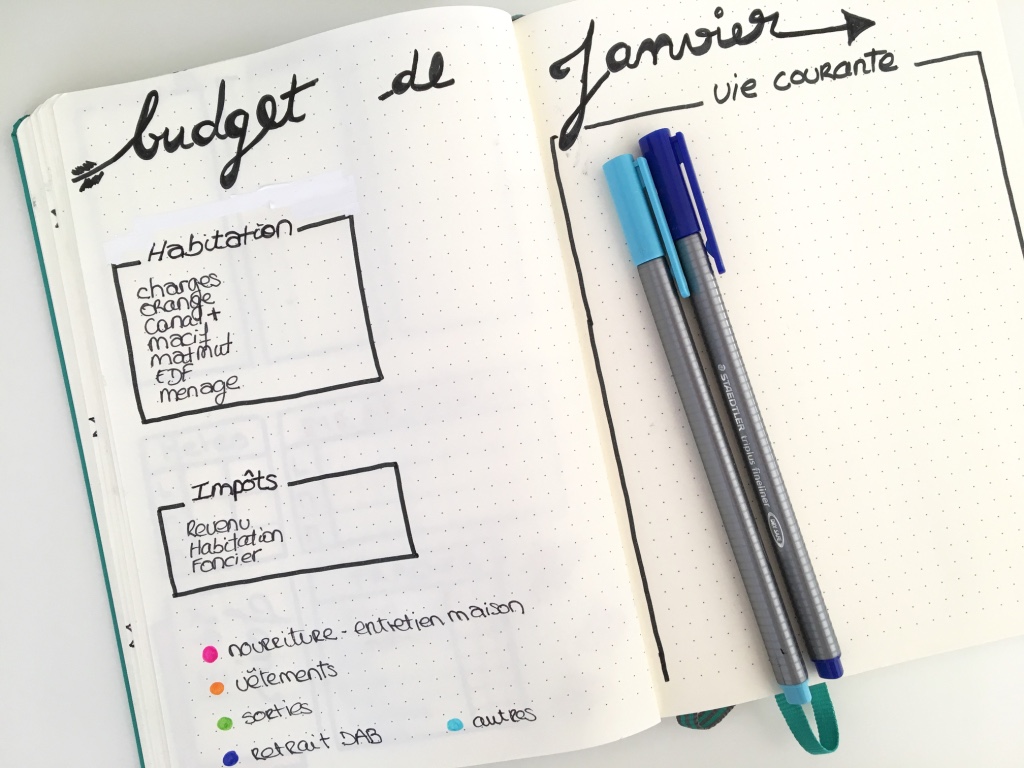 budget de
Habitation
charges
orange
canal +
macif
matmut
EDF
menage
Impôts
Revenu
Habitation
Foncier
nourriture - entretien maison
vêtements
sorties
retrait DAB
autres
Janvier
vie courante
STAEDTLER triplus fineliner